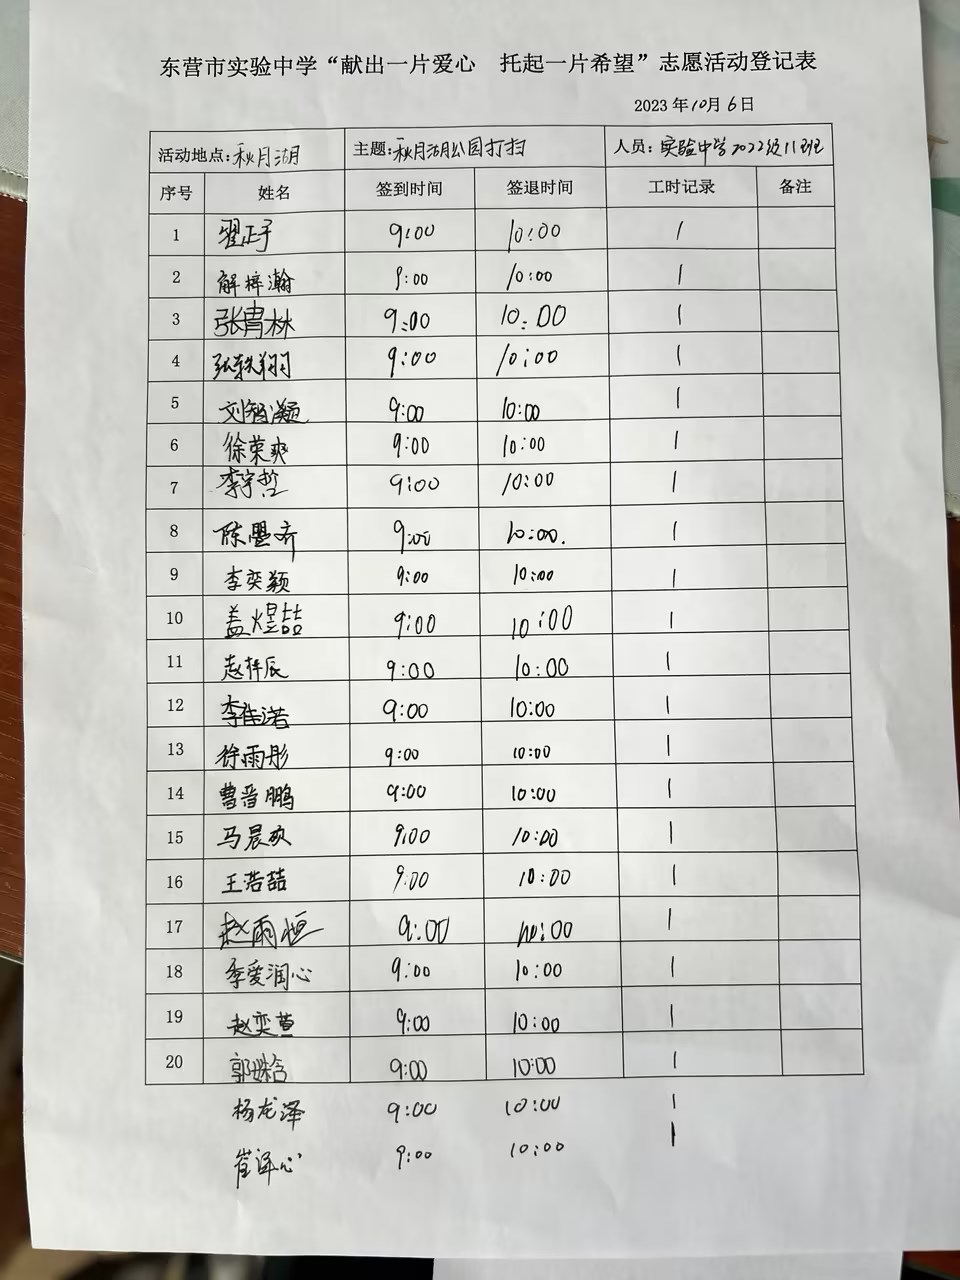 东营市实验中学“献出一片爱心 托起一片希望”志愿活动登记表
2023年10月6日
活动地点：秋月湖 主题：秋月湖公园打扫 人员：实验中学2022级11班
序号 姓名 签到时间 签退时间 工时记录 备注
1 翟正宇 9:00 10:00 1
2 解梓瀚 9:00 10:00 1
3 张胄林 9:00 10:00 1
4 张轶翔 9:00 10:00 1
5 刘智灏 9:00 10:00 1
6 徐荣爽 9:00 10:00 1
7 李宇哲 9:00 10:00 1
8 陈墨齐 9:00 10:00. 1
9 李奕颖 9:00 10:00 1
10 盖煜喆 9:00 10:00 1
11 赵梓辰 9:00 10:00 1
12 李佳诺 9:00 10:00 1
13 徐雨彤 9:00 10:00 1
14 曹晋鹏 9:00 10:00 1
15 马晨 9:00 10:00 1
16 王浩喆 9:00 10:00 1
17 赵雨恒 9:00 10:00 1
18 季爱润心 9:00 10:00 1
19 赵奕萱 9:00 10:00 1
20 郭姝含 9:00 10:00 1
杨龙泽 9:00 10:00 1
崔译心 9:00 10:00 1